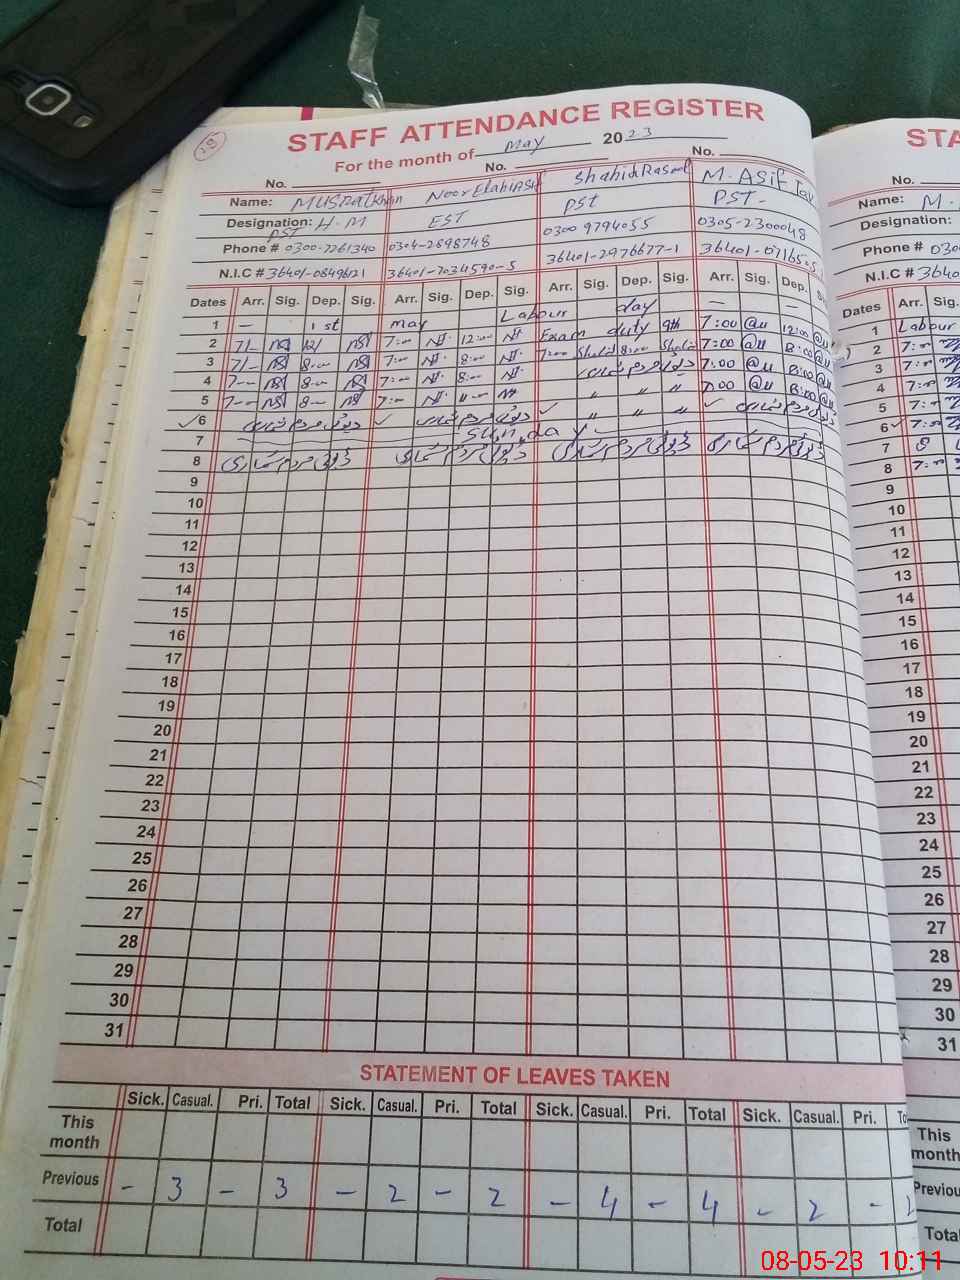 19
STAFF ATTENDANCE REGISTER
For the month of May 2023
No. No. No.
Name: Musratkhan NoorElahi Shahid Rasool M. ASif
Designation: PST H.M EST PST PST-
Phone # 0300-7261340 0304-2898748 0300 9794055 0305-2300048
N.I.C # 36401-0849612 36401-7034590-5 36401-2976677-1 36401-07165
Dates Arr. Sig. Dep. Sig. Arr. Sig. Dep. Sig. Arr. Sig. Dep. Sig. Arr. Sig. Dep.
1 — 1st May Labour day — —
2 7/- 12/ 7:00 12:00 Exam duty 9th 7:00 12:00
3 7/- 8:00 7:00 8:00 7:00 Shahid 8:00 Shahid 7:00 8:00
4 7:00 8:00 7:00 8:00 ڈیوٹی مردم شماری 7:00 8:00
5 7:00 8:00 7:00 " " " " 7:00 8:00
✓6 ڈیوٹی مردم شماری ✓ ڈیوٹی مردم شماری ✓ " " " ✓ ڈیوٹی مردم شماری
7 Sunday
8 ڈیوٹی مردم شماری ڈیوٹی مردم شماری ڈیوٹی مردم شماری ڈیوٹی مردم شماری
9
10
11
12
13
14
15
16
17
18
19
20
21
22
23
24
25
26
27
28
29
30
31
STATEMENT OF LEAVES TAKEN
Sick. Casual. Pri. Total Sick. Casual. Pri. Total Sick. Casual. Pri. Total Sick. Casual. Pri.
This month
Previous - 3 - 3 - 2 - 2 - 4 - 4 - 2 - 2
Total
STA
No.
Name: M.
Designation:
Phone # 030
N.I.C # 3640
Dates Arr. Sig.
1 Labour
2 7:00
3 7:00
4 7:00
5 7:00
6 7:00
7 S
8 7:00
9
10
11
12
13
14
15
16
17
18
19
20
21
22
23
24
25
26
27
28
29
30
31
This month
Previou
Total
08-05-23 10:11